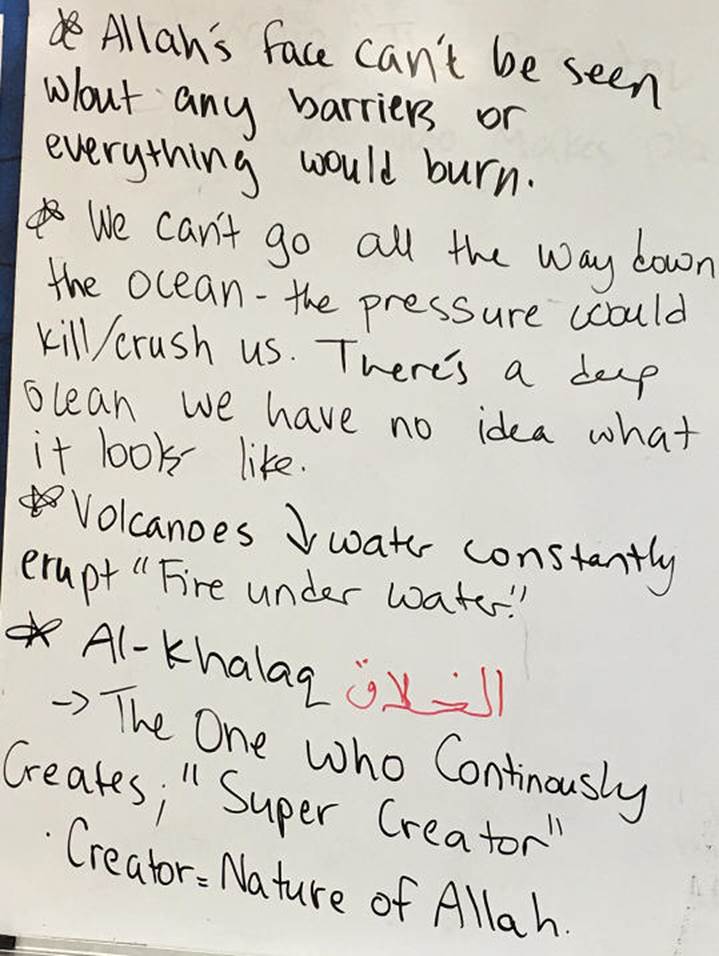 * Allah's face can't be seen
w/out any barriers or
everything would burn.
* We can't go all the way down
the ocean - the pressure would
kill/crush us. There's a deep
ocean we have no idea what
it looks like.
* Volcanoes ↓ water constantly
erupt "Fire under water!"
* Al-Khalaq الخلاق
→ The One who Continously
Creates; "Super Creator"
· Creator = Nature of Allah.